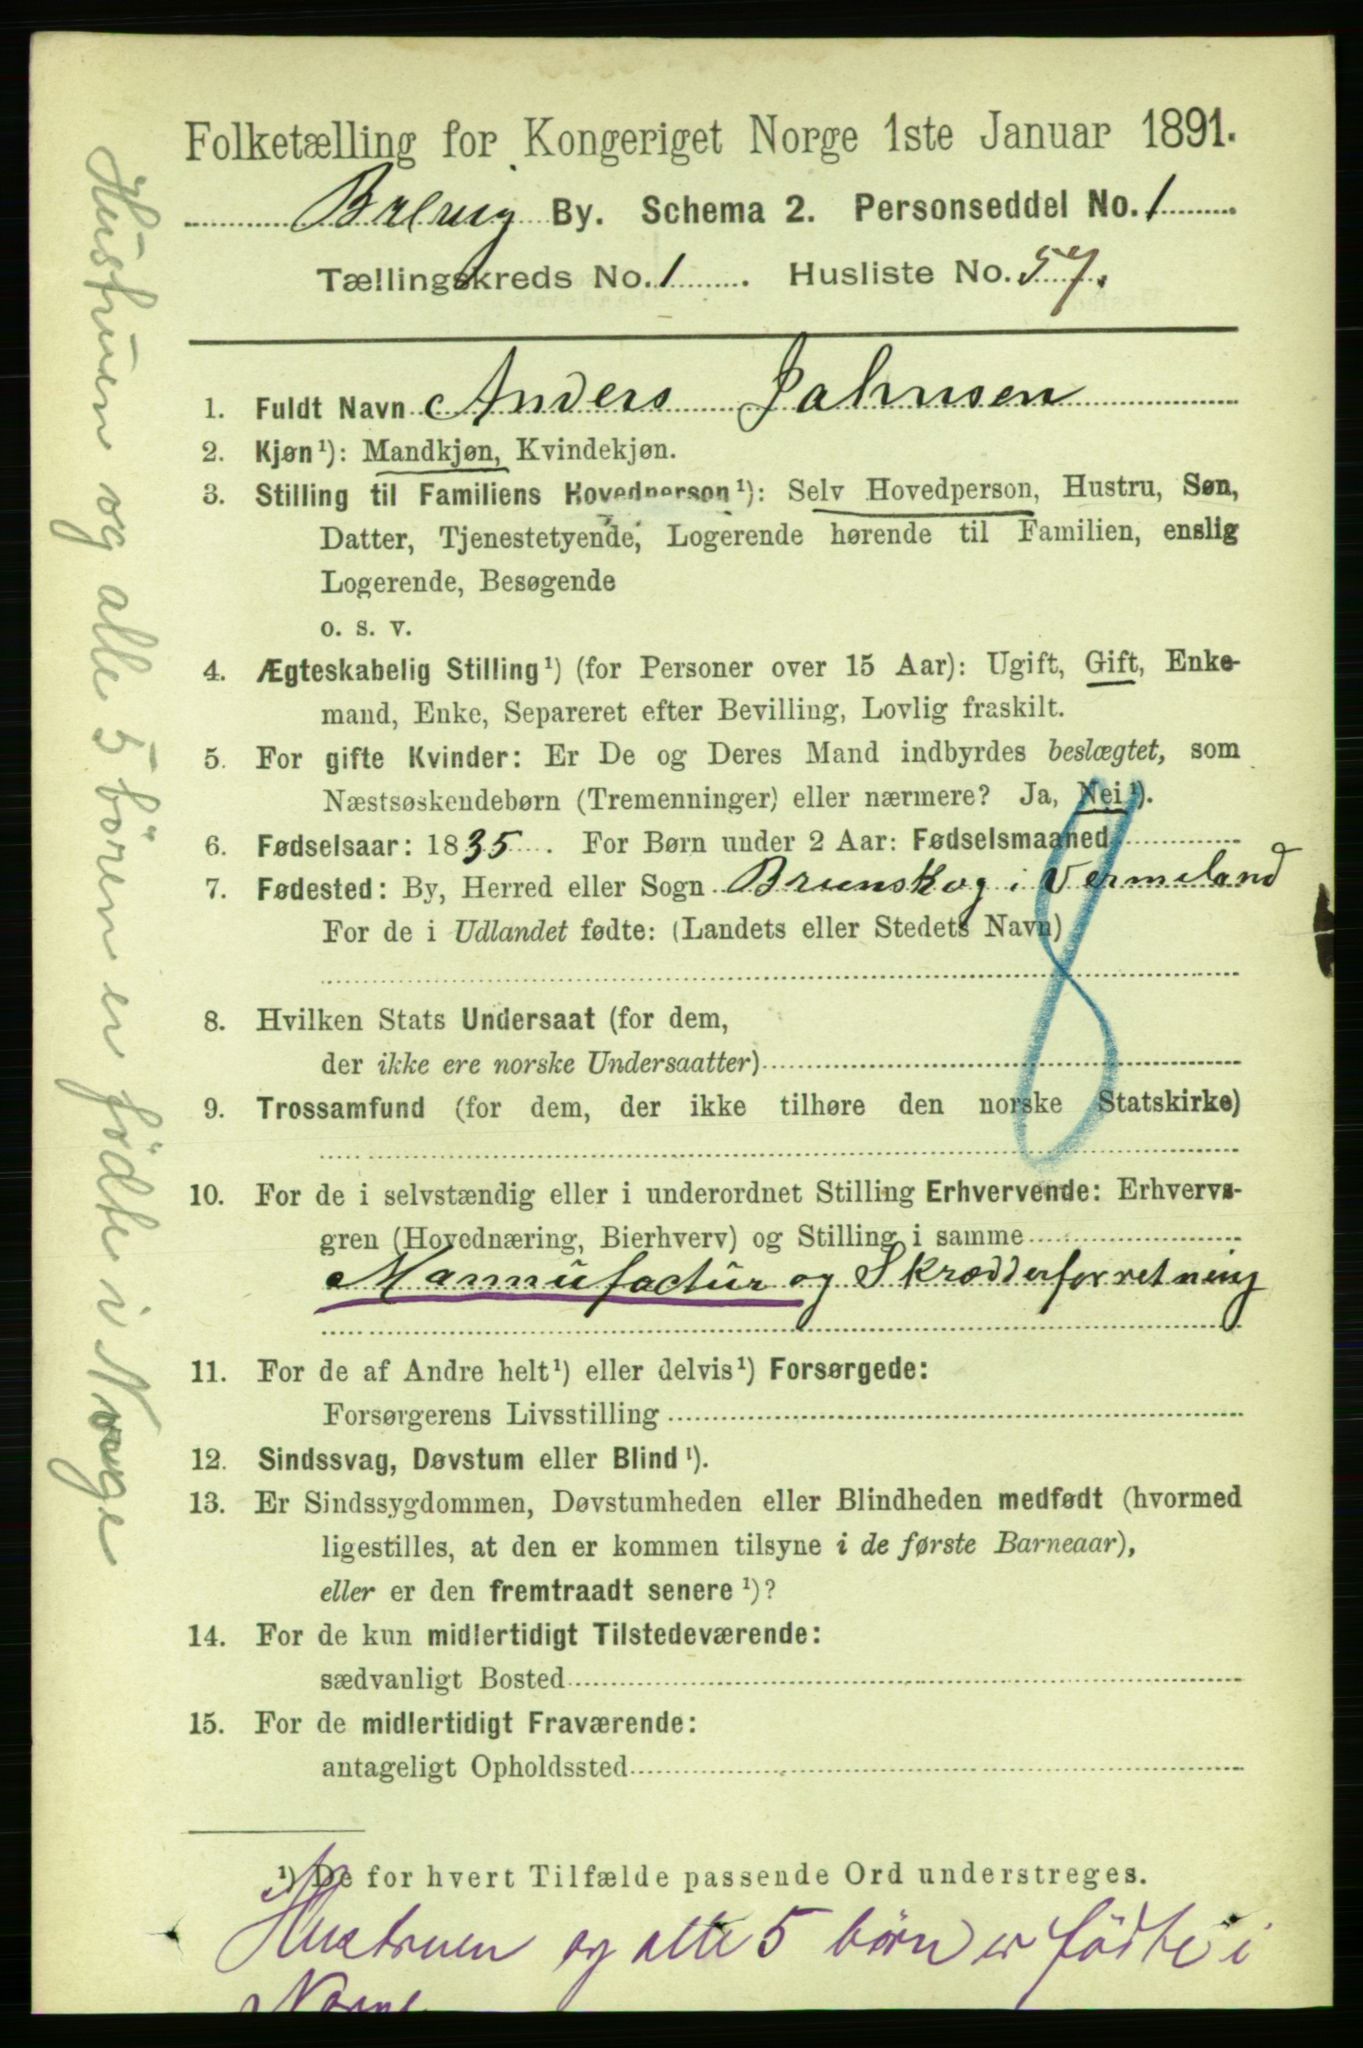 Folketælling for Kongeriget Norge 1ste Januar 1891.
Brevig By. Schema 2. Personseddel No. 1
Tællingskreds No. 1. Husliste No. 57.
1. Fuldt Navn Anders Jahnsen
2. Kjøn¹): Mandkjøn, Kvindekjøn.
3. Stilling til Familiens Hovedperson¹): Selv Hovedperson, Hustru, Søn,
Datter, Tjenestetyende, Logerende hørende til Familien, enslig
Logerende, Besøgende
o. s. v.
4. Ægteskabelig Stilling¹) (for Personer over 15 Aar): Ugift, Gift, Enke-
mand, Enke, Separeret efter Bevilling, Lovlig fraskilt.
5. For gifte Kvinder: Er De og Deres Mand indbyrdes beslægtet, som
Næstsøskendebørn (Tremenninger) eller nærmere? Ja, Nei¹).
6. Fødselsaar: 1835. For Børn under 2 Aar: Fødselsmaaned
7. Fødested: By, Herred eller Sogn Brunskog i Vermeland
For de i Udlandet fødte: (Landets eller Stedets Navn)
8
8. Hvilken Stats Undersaat (for dem,
der ikke ere norske Undersaatter)
9. Trossamfund (for dem, der ikke tilhøre den norske Statskirke)
10. For de i selvstændig eller i underordnet Stilling Erhvervende: Erhvervs-
gren (Hovednæring, Bierhverv) og Stilling i samme
Mannufactur og Skrædderforretning
11. For de af Andre helt¹) eller delvis¹) Forsørgede:
Forsørgerens Livsstilling
12. Sindssvag, Døvstum eller Blind¹).
13. Er Sindssygdommen, Døvstumheden eller Blindheden medfødt (hvormed
ligestilles, at den er kommen tilsyne i de første Barneaar),
eller er den fremtraadt senere¹)?
14. For de kun midlertidigt Tilstedeværende:
sædvanligt Bosted
15. For de midlertidigt Fraværende:
antageligt Opholdssted
¹) De for hvert Tilfælde passende Ord understreges.
Hustruen og alle 5 börn er födte i
Norge
Hustruen og alle 5 börn er födte i Norge